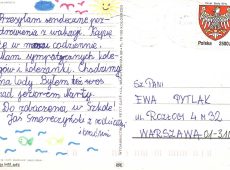 Przesyłam serdeczne poz-
drowienia z wakacji. Kąpię
się w morzu codziennie.
Mam sympatycznych kole-
gów i koleżanki. Chodzimy
na lody. Byłem też
nad jeziorem
Do zobaczenia w Szkole!
Jaś z rodzicami
i
Polska
Sz. Pani
EWA PYTLAK
UL. ROZŁOGI 4 M 92
WARSZAWA